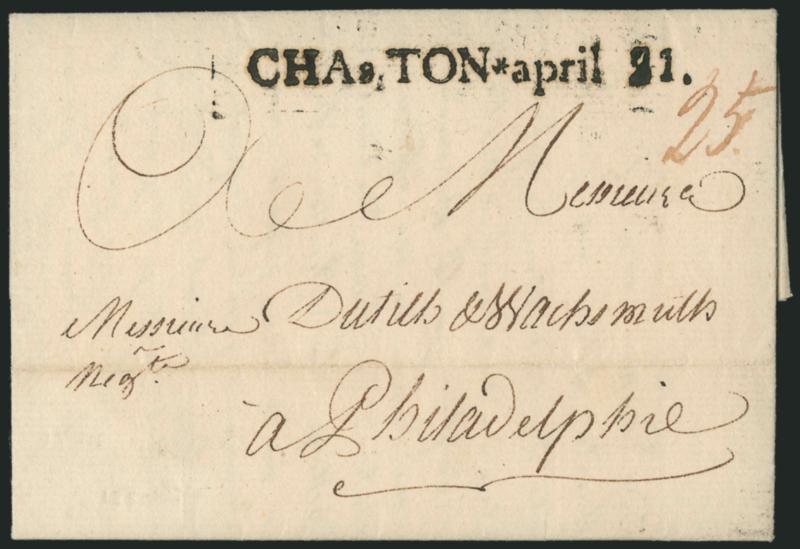 CHAs.TON*april 21.
25.
Messieurs
Messieurs Dutilh & Wachsmuth
Negts.
à Philadelphie